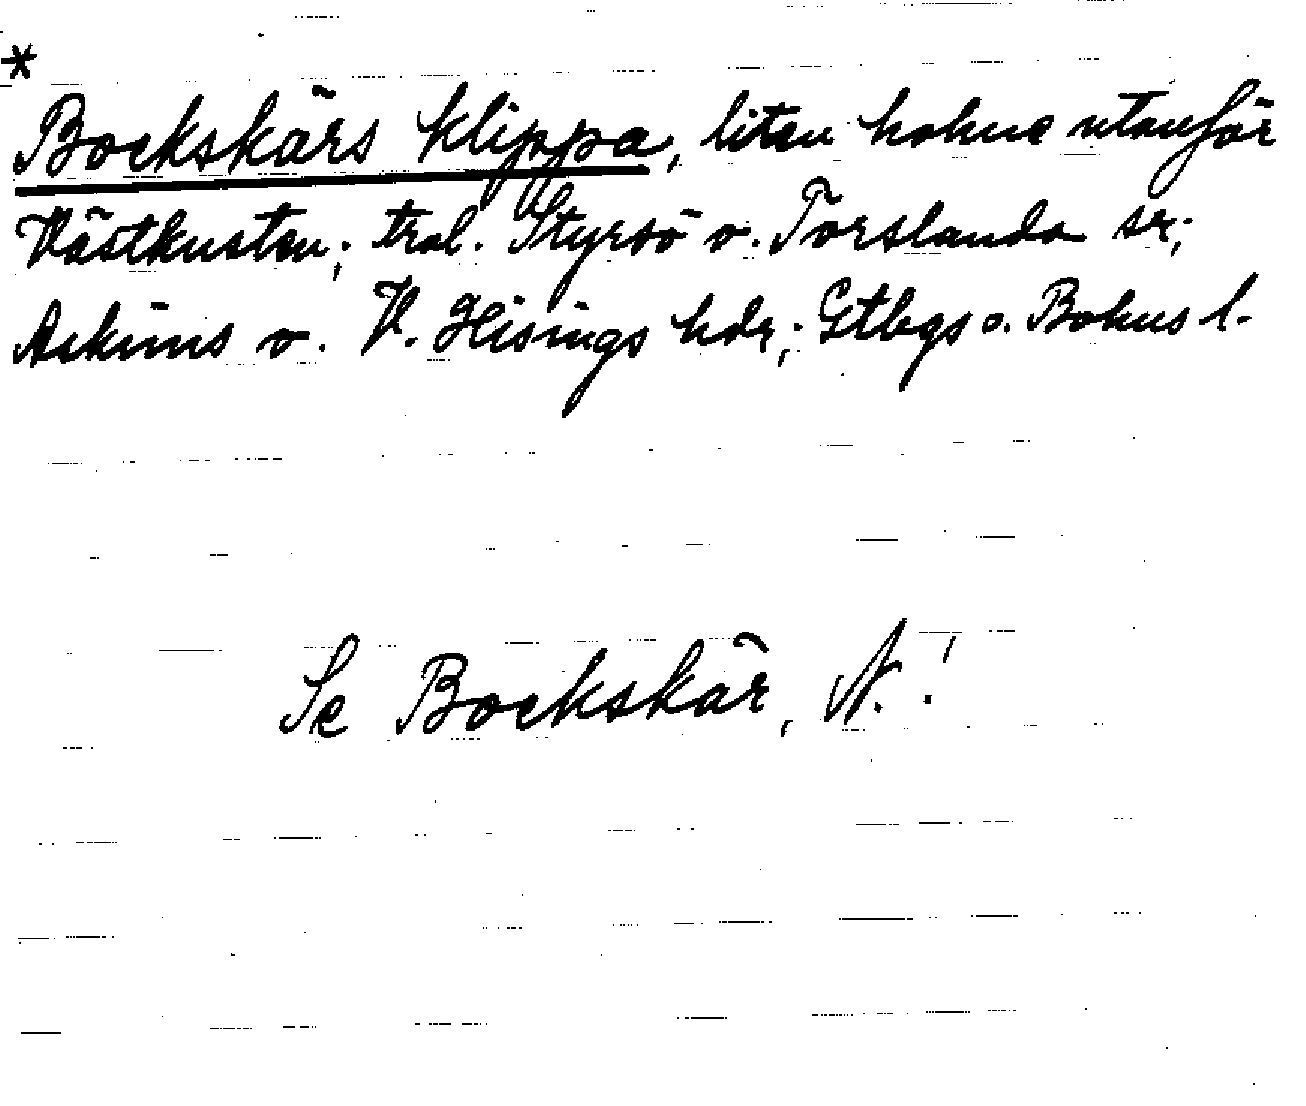 *
Bockskärs klippa, liten holme utanför
Västkusten; trol. Styrsö o. Torslanda sr;
Askims o. V. Hisings hdr; Gtbgs o. Bohus l.
Se Bockskär, N.!